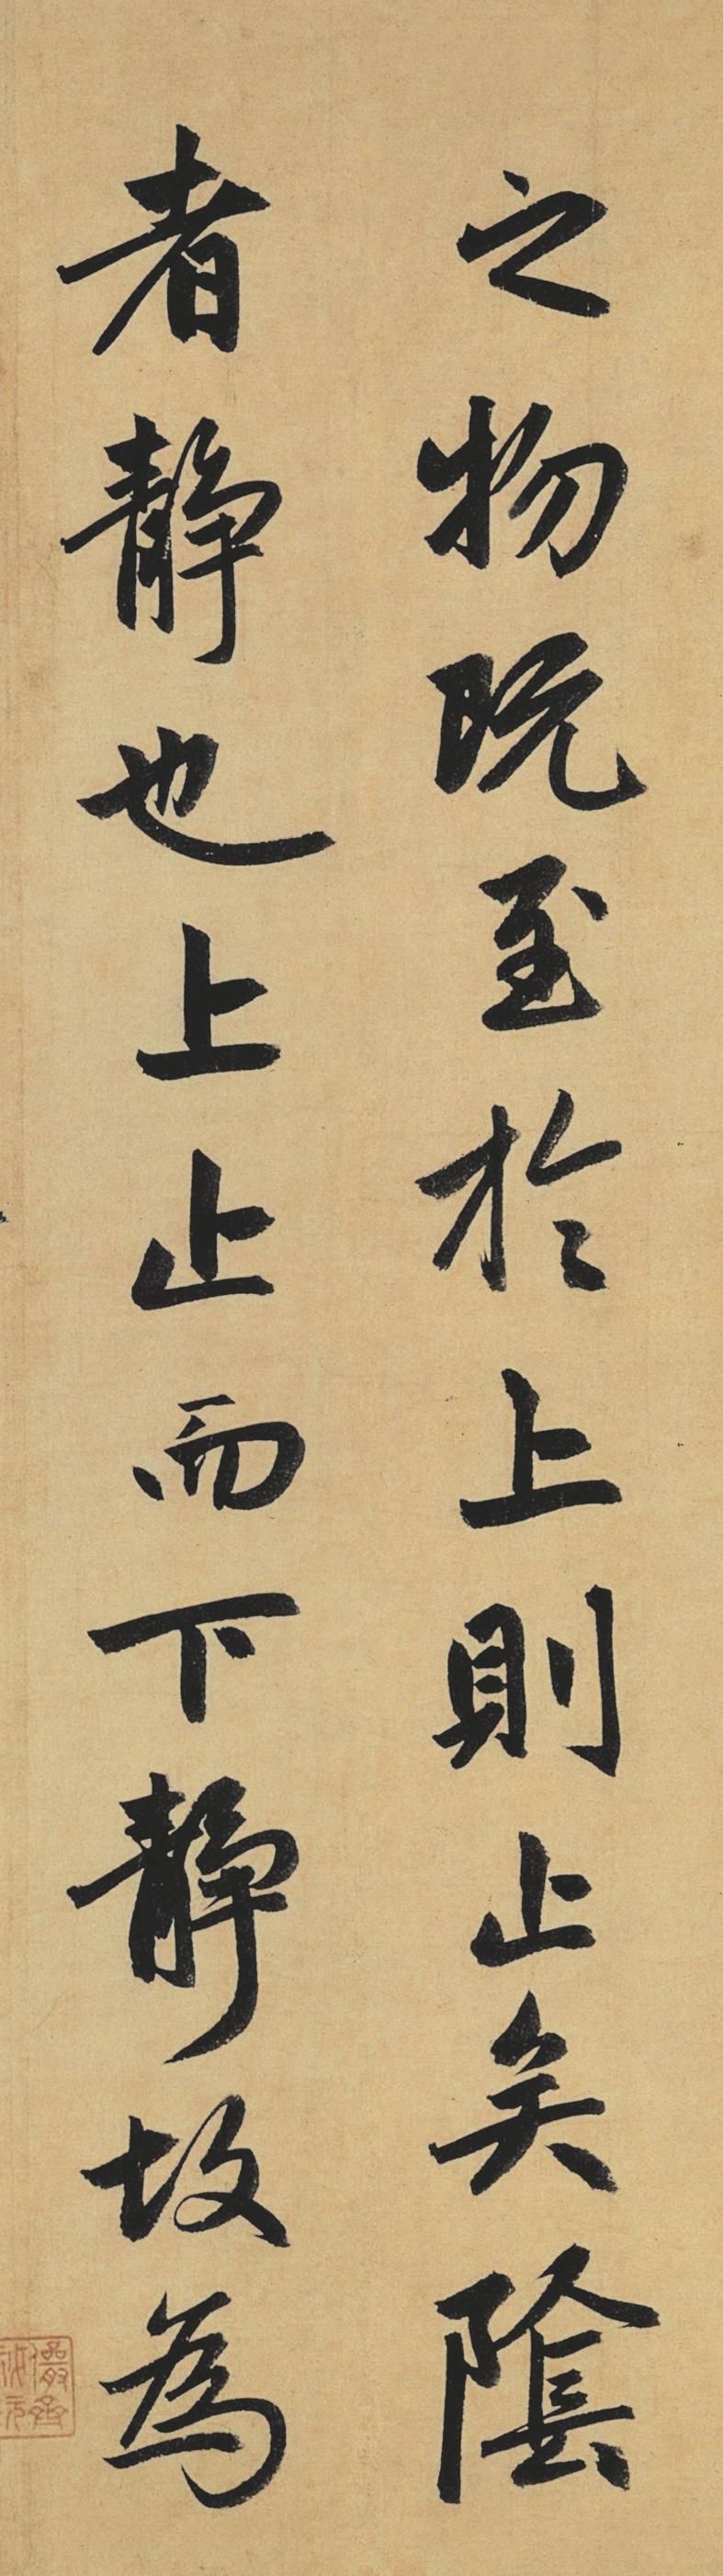 之物既至於上則止矣陰
者靜也上止而下靜故為